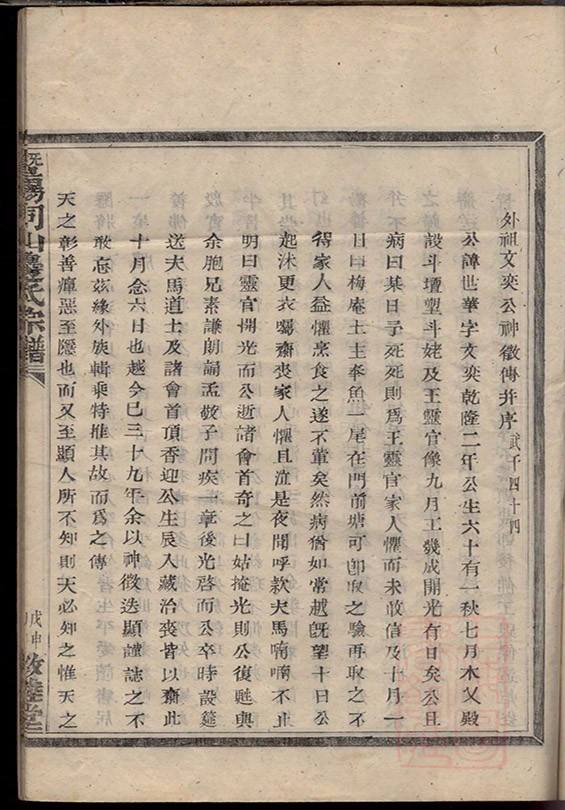 外祖文奕公神徵傳并序
公諱世華字文奕乾隆二年公生六十有一秋七月木乂殿
設斗壇塑斗姥及王靈官像九月工幾成開光有日矣公且
病曰某日予死死則爲王靈官家人懼而未敢信及十月一
日曰梅庵土主李魚一尾在門前塘可卽取之驗再取之不
得家人益懼烹食之遂不葷矣然病猶如常越旣望十日公
起沐更衣囑齋喪家人懼且泣是夜聞呼款大馬喃喃不止
明曰靈官開光而公逝諸會首奇之曰姑掩光則公復甦與
余胞兄素謙朗誦孟敬子問疾一章後光啓而公卒時設筵
送大馬道士及諸會首頂香迎公生辰入藏治喪皆以齋此
十月念六日也越今已三十九年余以神徵迭顯謹誌之不
敢忘茲緣外族輯乘特推其故而爲之傳
天之彰善癉惡至隱也而又至顯人所不知則天必知之惟天之
陽同山 氏宗譜
戊申
敦睦堂